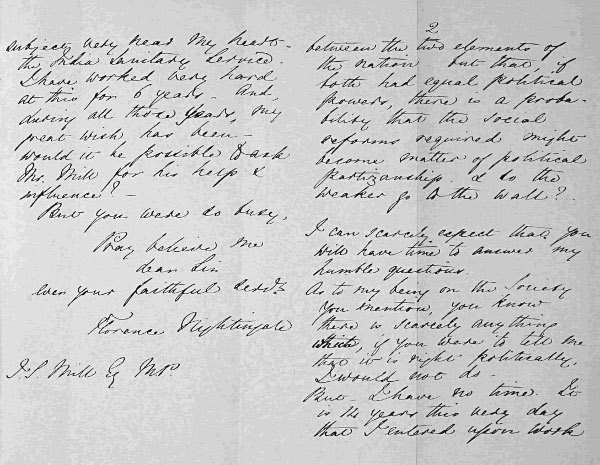 subject, very near my heart -
the India Sanitary Service.
I have worked very hard
at this for 6 years. And,
during all those years, my
great wish has been -
would it be possible to ask
Mr. Mill for his help &
influence? -
But you were so busy.
Pray believe me
dear Sir
ever your faithful servt
Florence Nightingale
J.S. Mill Eq MP.
2
between the two elements of
the nation but that if
both had equal political
powers, there is a proba-
bility that the social
reforms required might
become matter of political
partizanship. & so the
weaker go to the wall?
I can scarcely expect that you
will have time to answer my
humble questions.
As to my being on the Society
you mention, you know
there is scarcely anything
which, if you were to tell me
that it is right politically,
I would not do -
But - I have no time. It
is 14 years this very day
that I entered upon work